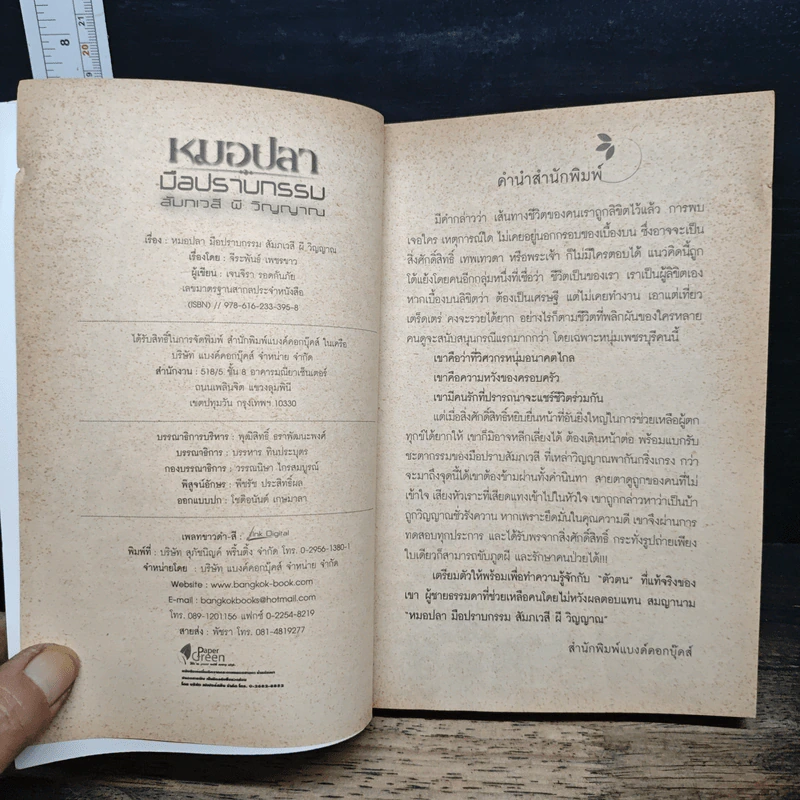 8
21
20
19
หมอปลา
มือปราบกรรม
สัมภเวสี ผี วิญญาณ
เรื่อง : หมอปลา มือปราบกรรม สัมภเวสี ผี วิญญาณ
เรื่องโดย : จีระพันธ์ เพชรขาว
ผู้เขียน : เจนจิรา รอดกันภัย
เลขมาตรฐานสากลประจำหนังสือ
(ISBN) // 978-616-233-395-8
ได้รับสิทธิ์ในการจัดพิมพ์ สำนักพิมพ์แบงค์คอกบุ๊คส์ ในเครือ
บริษัท แบงค์คอกบุ๊คส์ จำหน่าย จำกัด
สำนักงาน : 518/5 ชั้น 8 อาคารมณียาเซ็นเตอร์
ถนนเพลินจิต แขวงลุมพินี
เขตปทุมวัน กรุงเทพฯ 10330
บรรณาธิการบริหาร : พุฒิสิทธิ์ ธราพัฒนะพงศ์
บรรณาธิการ : บรรหาร ทินประบุตร
กองบรรณาธิการ : วรรณนิษา ไกรสมบูรณ์
พิสูจน์อักษร : พีชรัช ประสิทธิ์ผล
ออกแบบปก : โชติอนันต์ เกษมวลา
เพลทขาวดำ-สี : Ink Digital
พิมพ์ที่ : บริษัท สุภัชนิญค์ พริ้นติ้ง จำกัด โทร. 0-2956-1380-1
จำหน่ายโดย : บริษัทุ แบงค์คอกบุ๊คส์ จำหน่าย จำกัด
Website : www.bangkok-book.com
E-mail : bangkokbooks@hotmail.com
โทร.089-1201156 แฟกซ์ 0-2254-8219
สายส่ง : พัชรา โทร. 081-4819277
Paper
Green
คำนำสำนักพิมพ์
มีคำกล่าวว่า เส้นทางชีวิตของคนเราถูกลิขิตไว้แล้ว การพบ
เจอใคร เหตุการณ์ใด ไม่เคยอยู่นอกกรอบของเบื้องบน ซึ่งอาจจะเป็น
สิ่งศักดิ์สิทธิ์ เทพเทวดา หรือพระเจ้า ก็ไม่มีใครตอบได้ แนวคิดนี้ถูก
โต้แย้งโดยคนอีกกลุ่มหนึ่งที่เชื่อว่า ชีวิตเป็นของเรา เราเป็นผู้ลิขิตเอง
หากเบื้องบนลิขิตว่า ต้องเป็นเศรษฐี แต่ไม่เคยทำงาน เอาแต่เที่ยว
เตร็ดเตร่ คงจะรวยได้ยาก อย่างไรก็ตามชีวิตที่พลิกผันของใครหลาย
คนดูจะสนับสนุนกรณีแรกมากกว่า โดยเฉพาะหนุ่มเพชรบุรีคนนี้
เขาคือว่าที่วิศวกรหนุ่มอนาคตไกล
เขาคือความหวังของครอบครัว
เขามีคนรักที่ปรารถนาจะแชร์ชีวิตร่วมกัน
แต่เมื่อสิ่งศักดิ์สิทธิ์หยิบยื่นหน้าที่อันยิ่งใหญ่ในการช่วยเหลือผู้ตก
ทุกข์ได้ยากให้ เขาก็มิอาจหลีกเลี่ยงได้ ต้องเดินหน้าต่อ พร้อมแบกรับ
ชะตากรรมของมือปราบสัมภเวสี ที่เหล่าวิญญาณพากันกริ่งเกรง กว่า
จะมาถึงจุดนี้ได้เขาต้องข้ามผ่านทั้งคำนินทา สายตาดูถูกของคนที่ไม่
เข้าใจ เสียงหัวเราะที่เสียดแทงเข้าไปในหัวใจ เขาถูกกล่าวหาว่าเป็นบ้า
ถูกวิญญาณชั่วรังควาน หากเพราะยึดมั่นในคุณความดี เขาจึงผ่านการ
ทดสอบทุกประการ และได้รับพรจากสิ่งศักดิ์สิทธิ์ กระทั่งรูปถ่ายเพียง
ใบเดียวก็สามารถขับภูตผี และรักษาคนป่วยได้!!!
เตรียมตัวให้พร้อมเพื่อทำความรู้จักกับ “ตัวตน” ที่แท้จริงของ
เขา ผู้ชายธรรมดาที่ช่วยเหลือคนโดยไม่หวังผลตอบแทน สมญานาม
“หมอปลา มือปราบกรรม สัมภเวสี ผี วิญญาณ”
สำนักพิมพ์แบงค์คอกบุ๊คส์